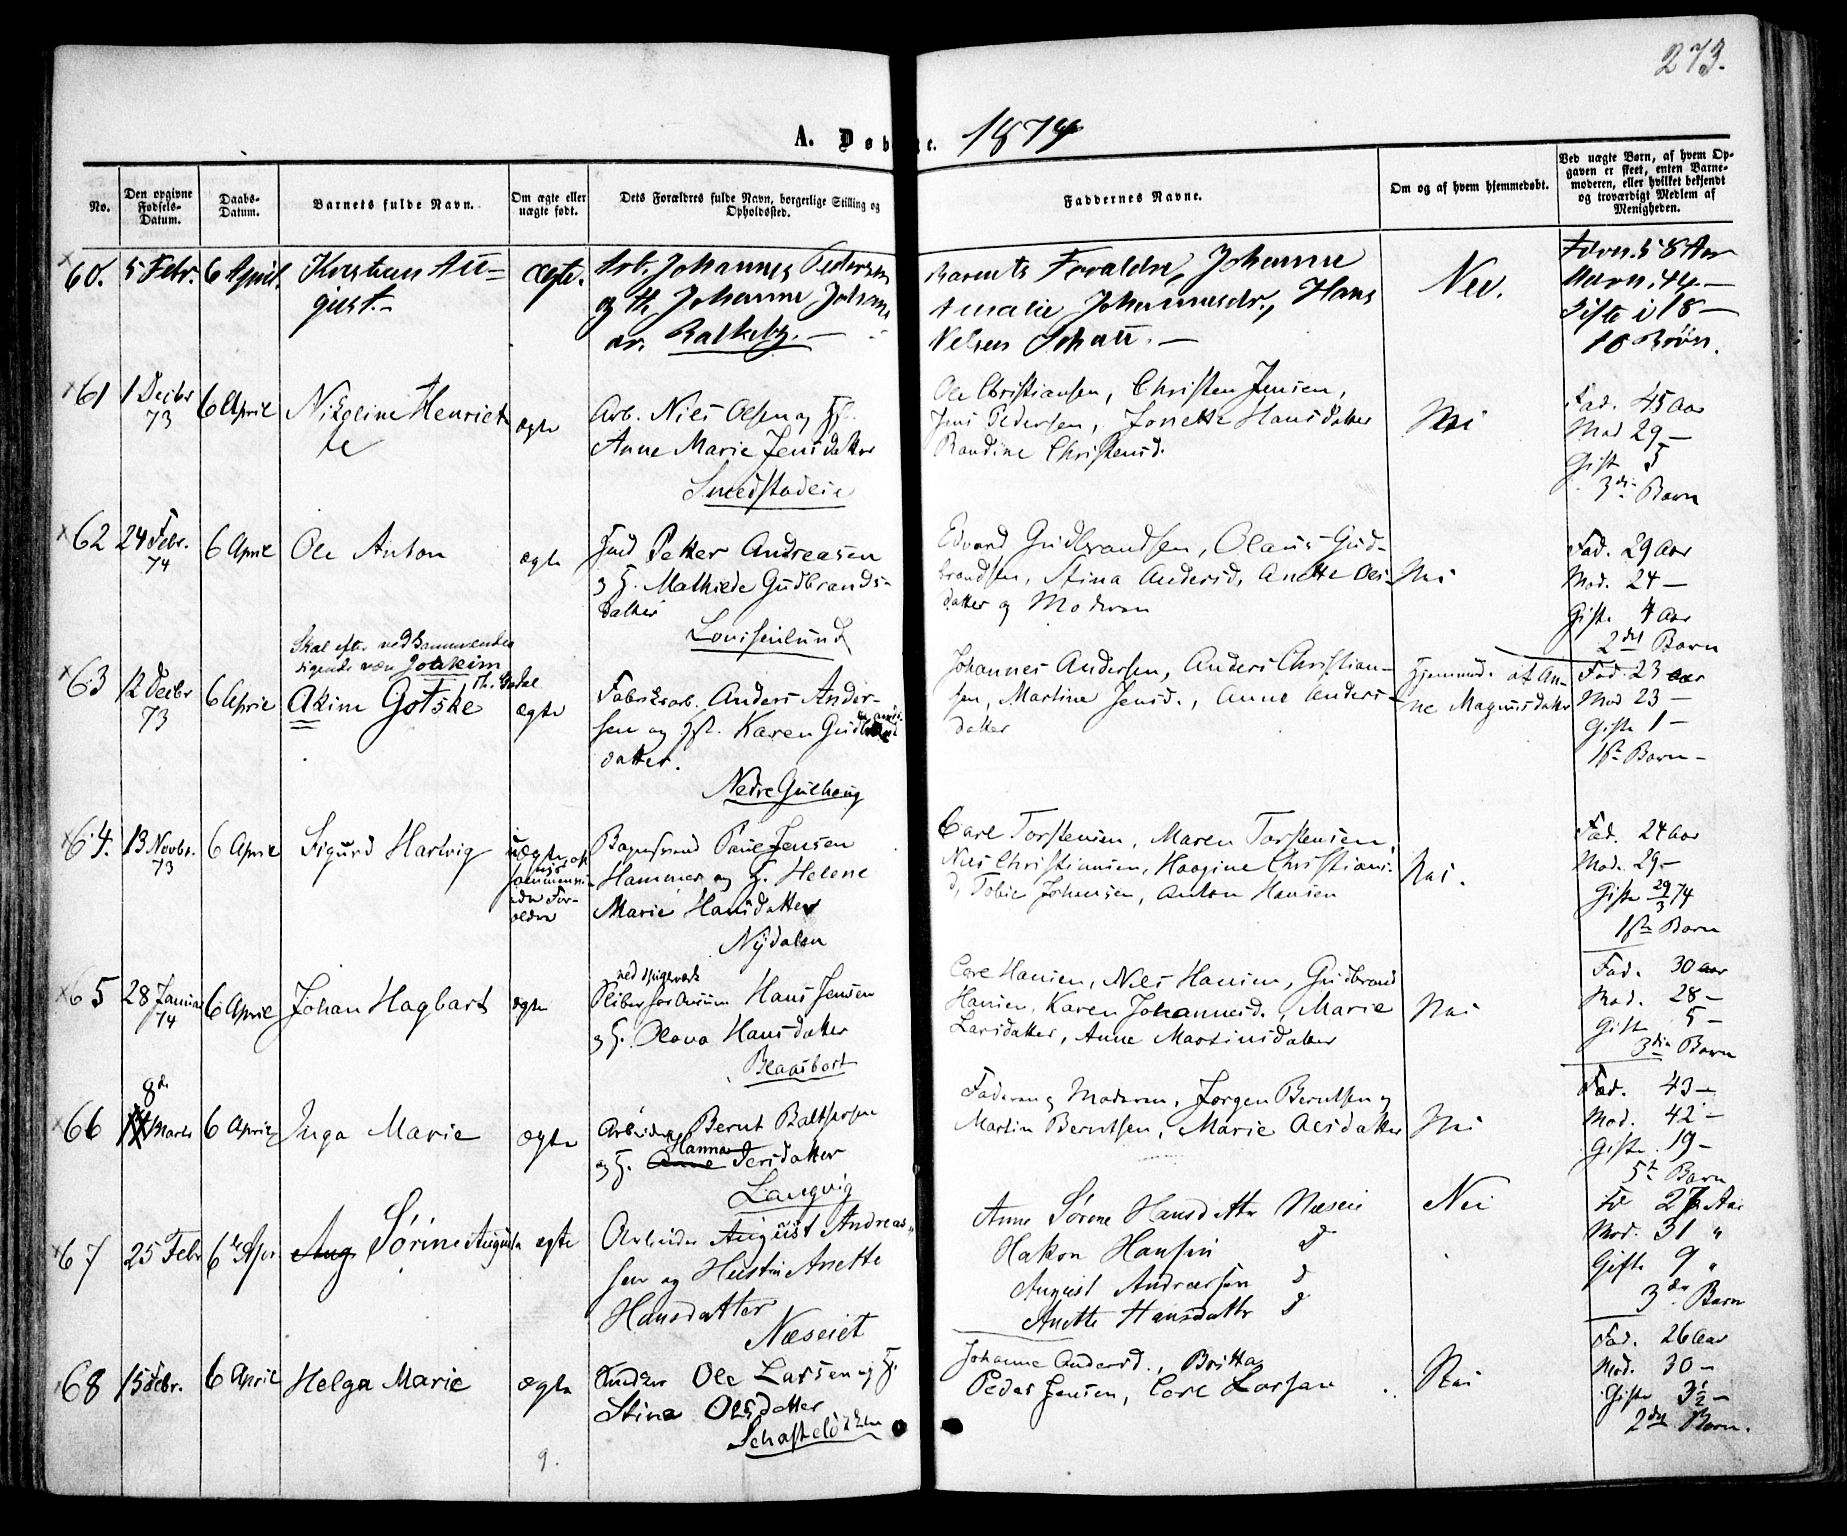 273.
A. Døbte. 1874
No.
Den opgivne Fødsels-Datum.
Daabs-Datum.
Barnets fulde Navn.
Om ægte eller uægte født.
Dets Forældres fulde Navn, borgerlige Stilling og Opholdssted.
Faddernes Navne.
Om og af hvem hjemmedøbt.
Ved uægte Børn, af hvem Opgaven er skeet, enten Barnemoderen, eller hvilket bekjendt og troværdigt Medlem af Menigheden.
60. 5 Febr. 6 April. Kristian Au-
gust.
ægte.
Arb. Johannes Pedersen
og H. Johanne Johans
dr. Balkeby.
Barnets Forældre, Johanne
Amalie Johannesdr., Hans
Nielsen
Nei.
Faren 58 Aar
Moren. 44.
Gifte i 18
10 Børn.
61 1 Decbr 73 6 April Nikoline Henriet
te
ægte
Arb. Niels Olsen og H.
Anne Marie Jensdatter
Smedstadeie
Ole Christiansen, Christen Jensen,
Jens Pedersen, Jonette Hansdatter
Randine Christensd.
Nei
Fad. 45 Aar
Mod 29
Gift 5
3die Barn
62 24 Febr. 74 6 April Ole Anton
ægte
Petter Andreasen
og H. Mathilde Gudbrands-
datter
Louisenlund
Edvard Gudbrandsen, Olaus Gud-
brandsen, Stina Andersd, Anette Ols-
datter og Moderen
Nei
Fad. 29 Aar
Mod. 24
Gifte 4 Aar
2det Barn
63 12 Decbr 73 6 April
Skal efter
Joakim
Akim Gotske
ægte
Fabriksarb. Anders Ander-
sen og H. Karen Gudbrands
datter.
Nedre Gulhaug
Johannes Andersen, Anders Christian-
sen, Martine Jensd., Anne Anders-
datter
Hjemmed. af An-
ne Magnusdatter
Fad. 23 Aar
Mod 23
Gifte 1
1ste Barn
64. 13 Novbr. 73 6 April Sigurd Hartvig
uægte
Bogmand Paul Jensen
Hammer og H. Helene
Marie Hansdatter
Nydalen
Carl Torstensen, Maren Torstensen,
Nils Christiansen, Haagine Christians-
d, Tolie Johansen, Anton Hansen
Nei.
Fad. 24 Aar
Mod. 29
Gifte 29/3 74
1ste Barn
65 28 Januar 74 6 April Johan Hagbart
ægte
Hans Jensen
og H. Olava Hansdatter
Blaasbort
Carl Hansen, Nils Hansen, Gudbrand
Hansen, Karen Johannesd., Marie
Larsdatter, Anne Martinsdatter
Nei
Fad. 30 Aar
Mod. 28
Gifte 5
3die Barn
66 8de Marts 6 April Inga Marie
ægte
Arbeider Bernt Baltsersen
og H. Anne Hanna Jersdatter
Langvig
Faderen og Moderen, Jørgen Berntsen og
Martin Berntsen, Marie Olsdatter
Nei
Fad. 43
Mod. 42
Gifte. 19
5te Barn
67 25 Febr 6te Apr Aug Sørine Augusta
ægte
Arbeider August Andreas-
sen og Hustru Anette
Hansdatter
Næseiet
Anne Sørene Hansdatter Næseie
Hakon Hansen d
August Andreassen d
Anette Hansdatter d
Nei
Fd 27 Aar
Mod. 31 "
Gifte 9 "
3die Barn
68 15 Febr. 6 April Helga Marie
ægte
Ole Larsen og H.
Stina Olsdatter
Johanne Andersd., Britta
Peder Jensen, Carl Larsen
Nei
Fad. 26 Aar
Mod. 30
Gifte 3½
2det Barn.
9.